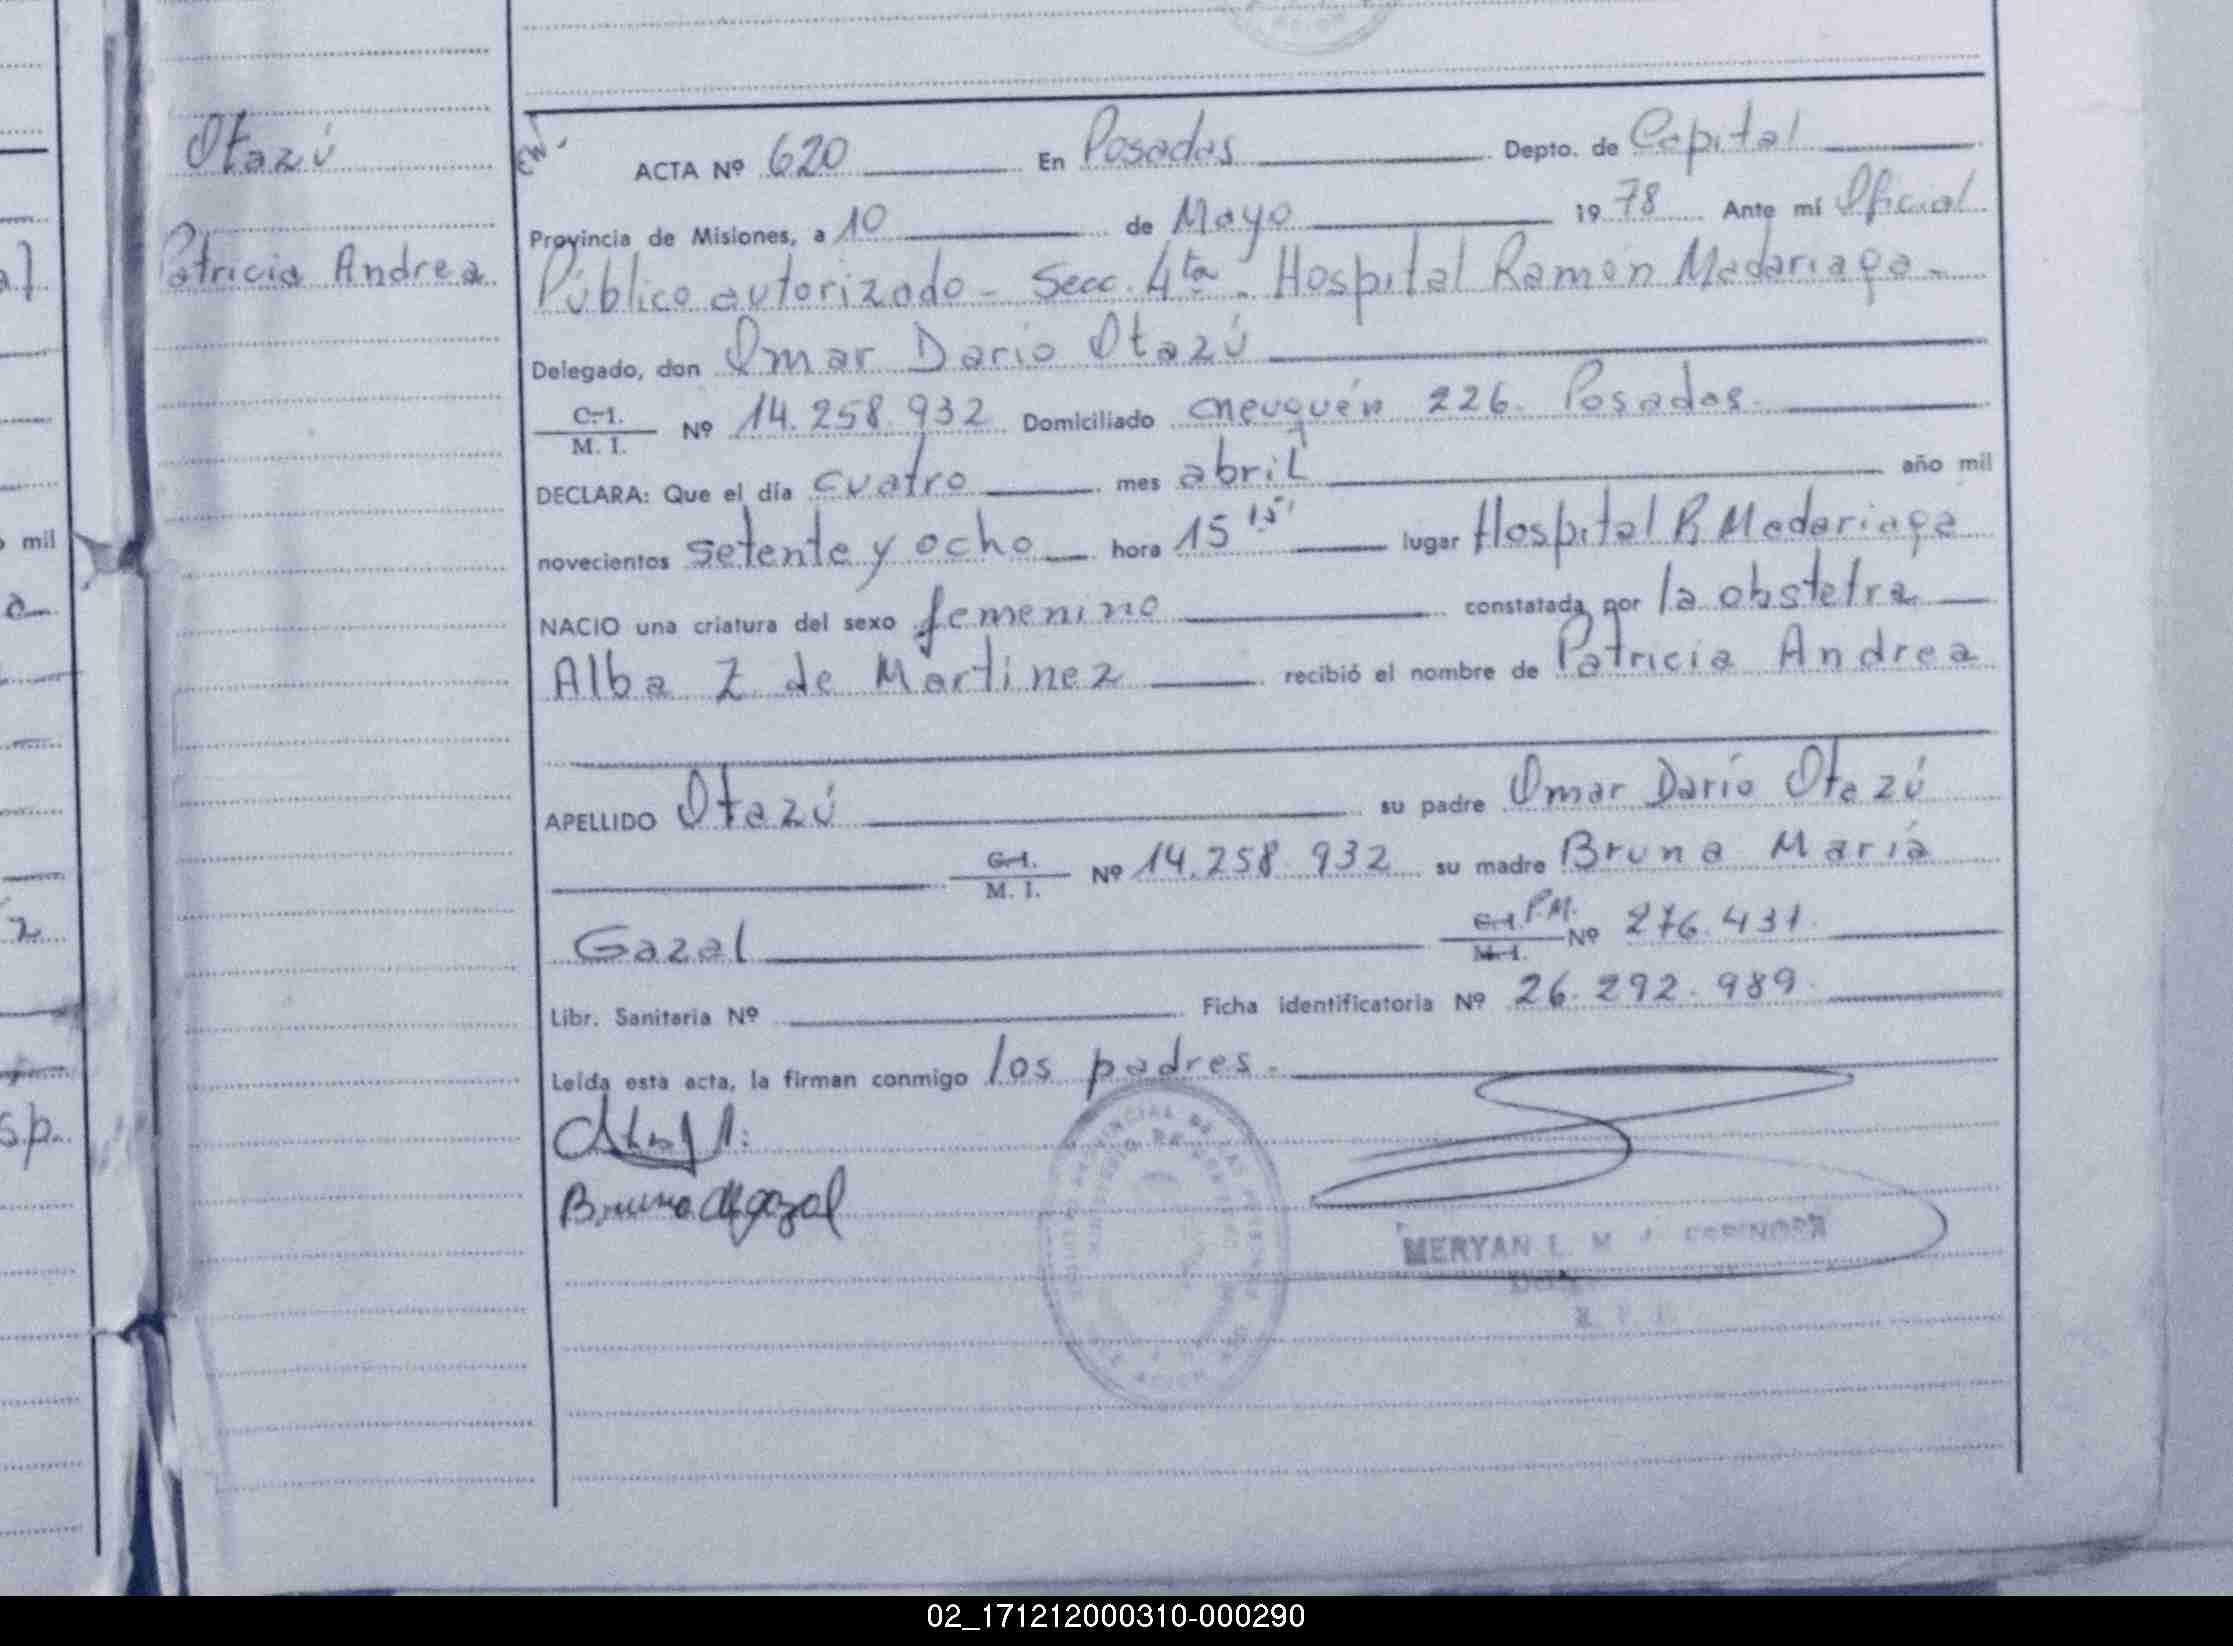 Otazú
Patricia Andrea
ACTA Nº 620 En Posadas Depto. de Capital
Provincia de Misiones, a 10 de Mayo 1978 Ante mí Oficial
Público autorizado - Secc. 4ta. Hospital Ramón Madariaga -
Delegado, don Omar Dario Otazú
C.I. M. I. Nº 14.258.932 Domiciliado Neuquén 226. Posadas.
DECLARA: Que el día cuatro mes abril año mil
novecientos setenta y ocho hora 15 15' lugar Hospital R Madariaga
NACIO una criatura del sexo femenino constatada por la obstetra
Alba Z de Martinez recibió el nombre de Patricia Andrea
APELLIDO Otazú su padre Omar Darío Otazú
C.I. M. I. Nº 14.258.932 su madre Bruna María
Gazal C.I. P.M. M.I. Nº 276.431.
Libr. Sanitaria Nº Ficha identificatoria Nº 26.292.989.
Leída esta acta, la firman conmigo los padres.-
Bruna M gazal
MERYAN L. M.
mil
sp.
02_171212000310-000290